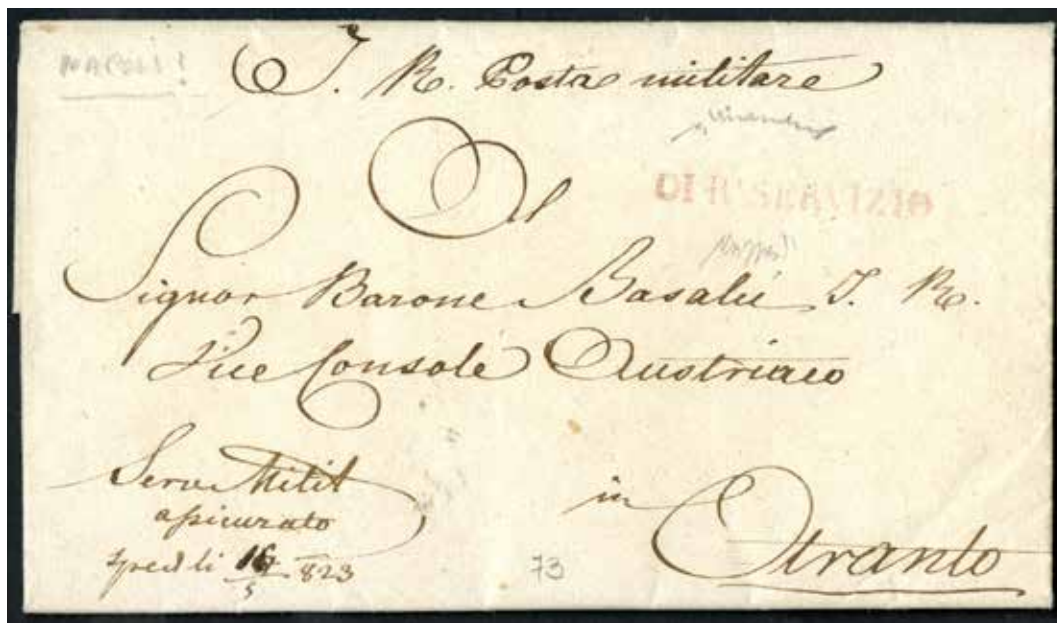 NAPOLI!
I. R. Posta militare
Al
DI R' SERVIZIO
Signor Barone Basalù I. R.
Vice Console Austriaco
Serv. Milit
assicurato
in
Otranto
spedli 16/5 823
73